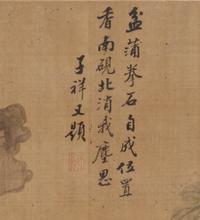 盆蒲拳石自成位置
香南硯北消我塵思
子祥又題